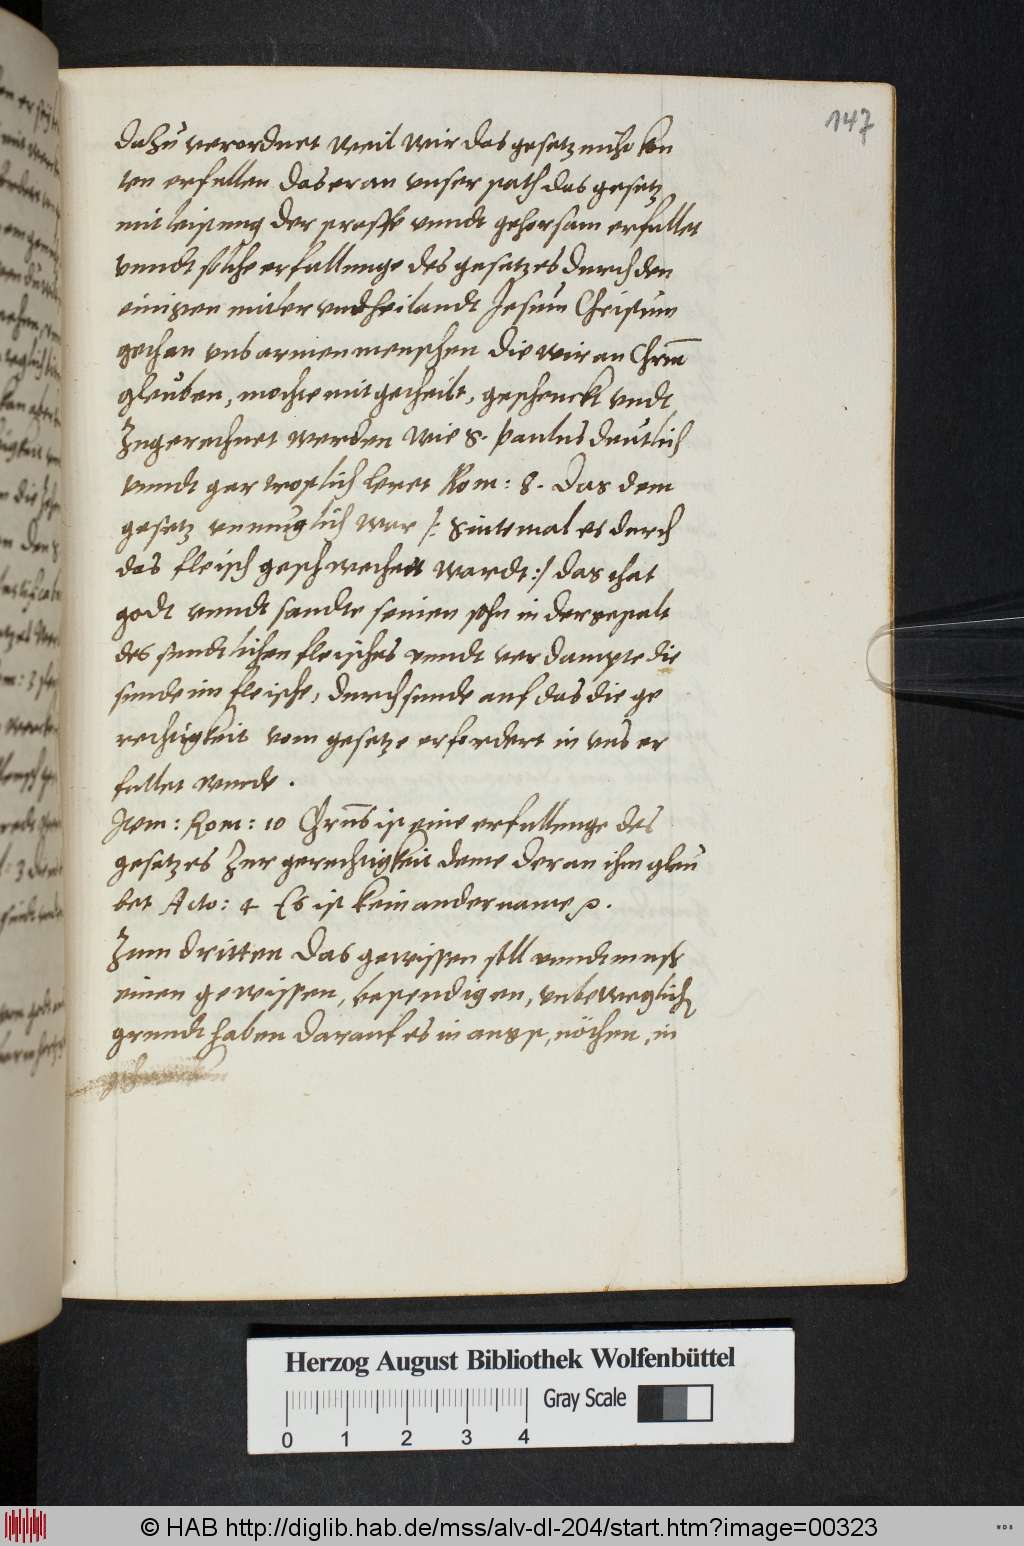 147
dazu verordnet weil wir das gesetz nicht kon
ten erfullen das er an unser stath das gesetz
mit leistung der straffe unndt gehorsam erfullet
unndt solche erfullunge des gesetzes durch den
einigen mitler undt heilandt Jesum Christum
gethan uns armen menschen die wir an Chrm̄
gleuben, mochte mitgetheilt, geschenckt undt
Zugerechnet werden wie S. Paulus deutlich
unndt gar trostlich leret Rom: 8. Das dem
gesetz unmuglich war /: Sintemal es durch
das fleisch geschwechett wardt :/ das that
godt unndt sandte seinen sohn in der gestalt
des sundtlichen fleisches unndt verdampte die
sunde im fleische, durch sunde auf das die ge
rechtigkeit vom gesetze erfordert in uns er
fullet wurde.
Item: Rom: 10 Chrūs ist eine erfullunge des
gesetzes Zur gerechtigkeit deme der an ihm gleu
bet Acto: 4 Es ist kein ander name p.
Zum dritten das gewissen soll unndt muss
einen gewissen, bestendigen, unbeweglich
grundt haben darauf es in angst, nöthen, in
Herzog August Bibliothek Wolfenbüttel
Gray Scale
0 1 2 3 4
© HAB http://diglib.hab.de/mss/alv-dl-204/start.htm?image=00323